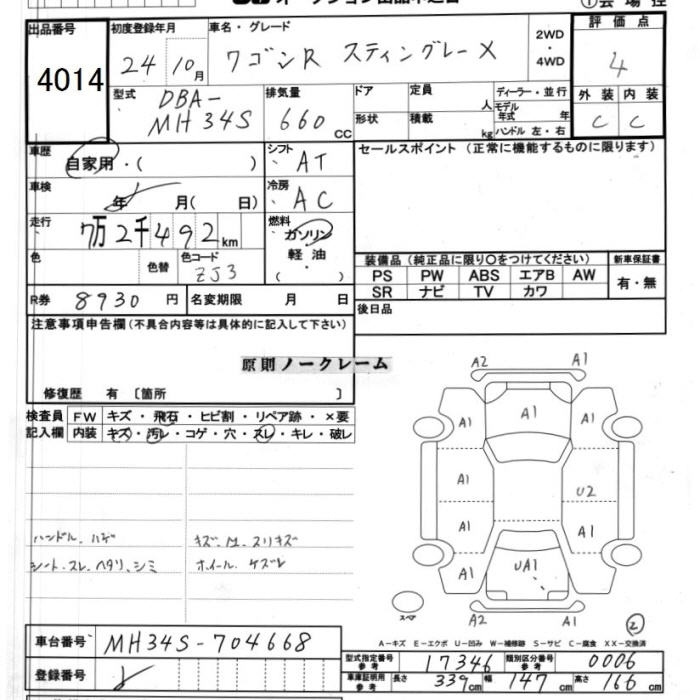 出品番号 初度登録年月 車名・グレード 2WD・4WD 評価点
4014 24 10月 ワゴンR スティングレーX 4
型式 DBA-MH34S 排気量 660cc ドア 定員 人 ディーラー・並行
形状 積載 kg モデル年式 年 ハンドル 左・右
外装 内装
C C
車歴 自家用・( ) シフト AT セールスポイント (正常に機能するものに限ります)
車検 年 月( 日) 冷房 AC
走行 7万2千492km 燃料 ガソリン 軽油 ・( )
色 色替 色コード ZJ3
装備品 (純正品に限り○をつけてください) 新車保証書
PS PW ABS エアB AW 有・無
SR ナビ TV カワ
R券 8930円 名変期限 月 日 後日品
注意事項申告欄 (不具合内容等は具体的に記入して下さい)
原則ノークレーム
修復歴 有 〔箇所 〕
検査員 FW キズ・飛石・ヒビ割・リペア跡・×要
記入欄 内装 キズ・汚レ・コゲ・穴・スレ・キレ・破レ
A2 A1
A1 A1 A1
A1 U2
A1 A1
A1 UA1 A1
A2 A1
スペア
②
ハンドル、ハゲ
シート・スレ、ヘタリ、シミ
ホイール、ケズレ
A-キズ E-エクボ U-凹み W-補修跡 S-サビ C-腐食 XX-交換済
車台番号 MH34S-704668
登録番号
型式指定番号 参考 17346 類別区分番号 参考 0006
車庫証明用 参考 長さ 339cm 幅 147cm 高さ 166cm